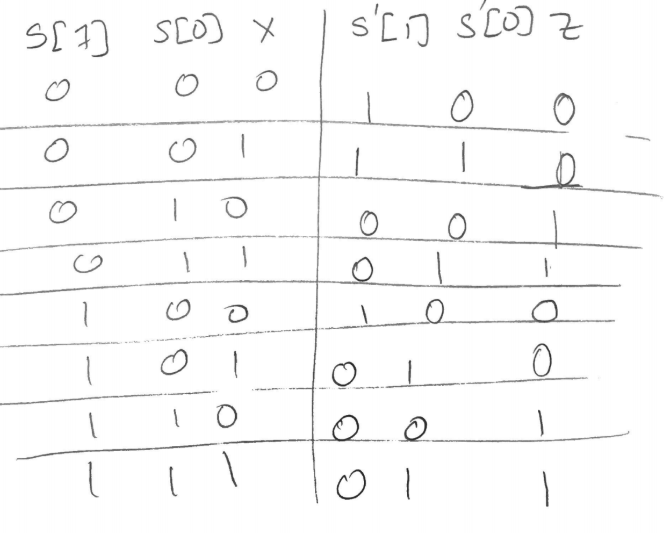 S[1] S[0] X S'[1] S'[0] Z
0 0 0 1 0 0
0 0 1 1 1 0
0 1 0 0 0 1
0 1 1 0 1 1
1 0 0 1 0 0
1 0 1 0 1 0
1 1 0 0 0 1
1 1 1 0 1 1